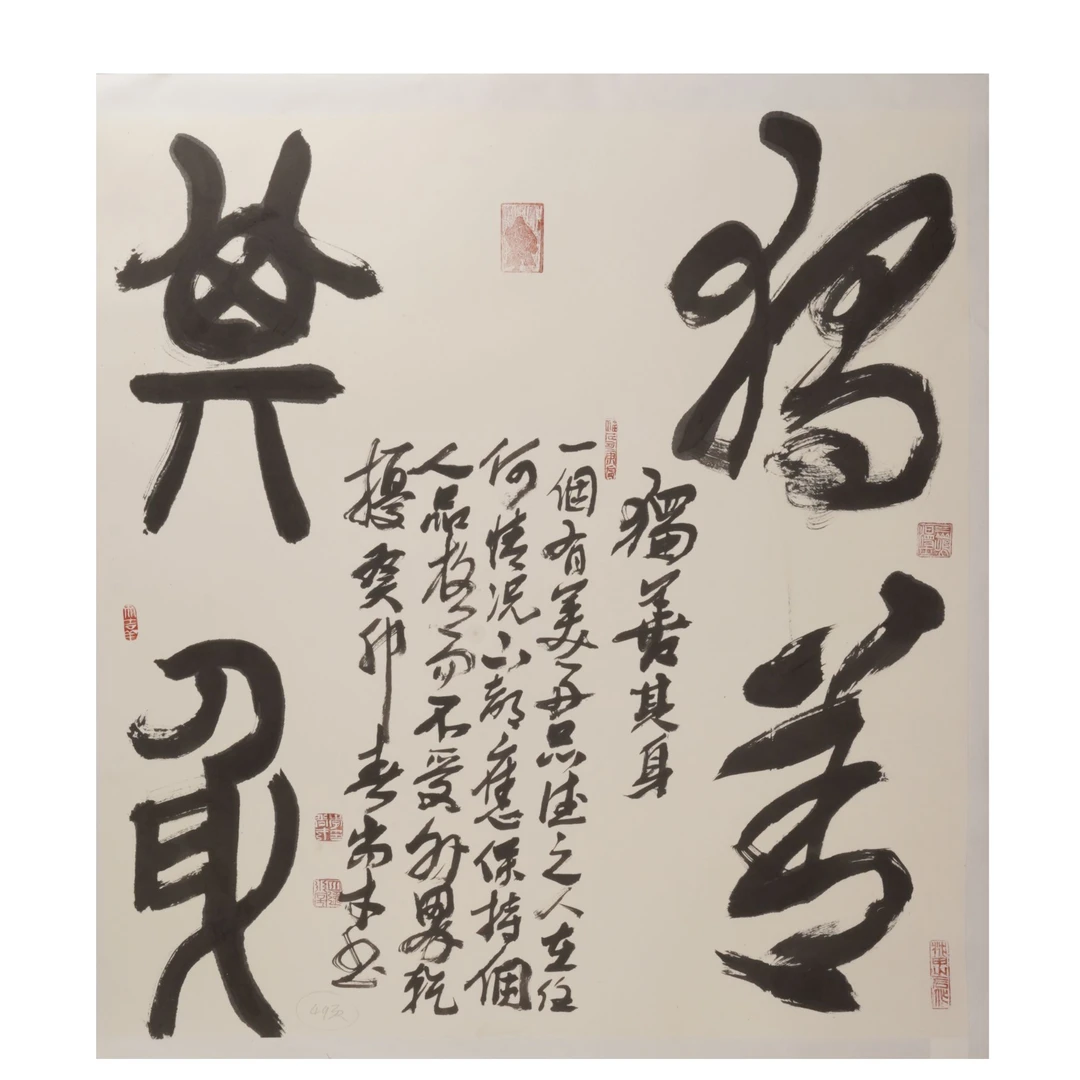 獨善
其身
獨善其身
一個有美好品德之人在任
何情況下都應保持個
人品格而不受外界乾
擾癸卯春尚书